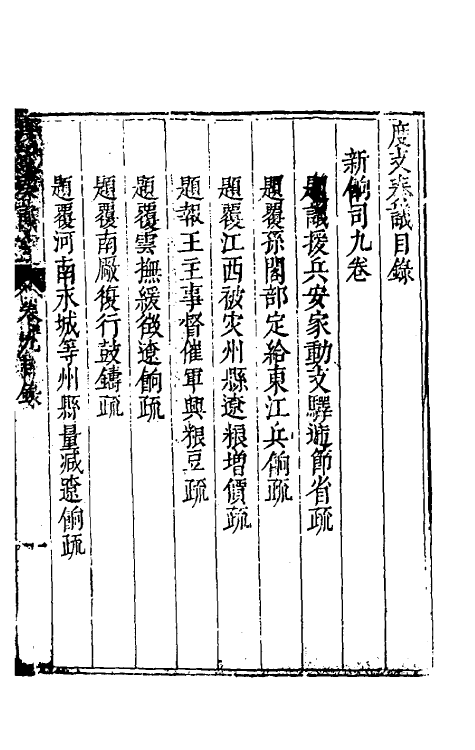 度支奏議目錄
新餉司九卷
題議援兵安家動支驛遞節省疏
題覆孫閣部定給東江兵餉疏
題覆江西被灾州縣遼粮增價疏
題報王主事督催軍興粮豆疏
題覆雲撫緩徵遼餉疏
題覆南廠復行鼓鑄疏
題覆河南永城等州縣量減遼餉疏
卷九 目錄